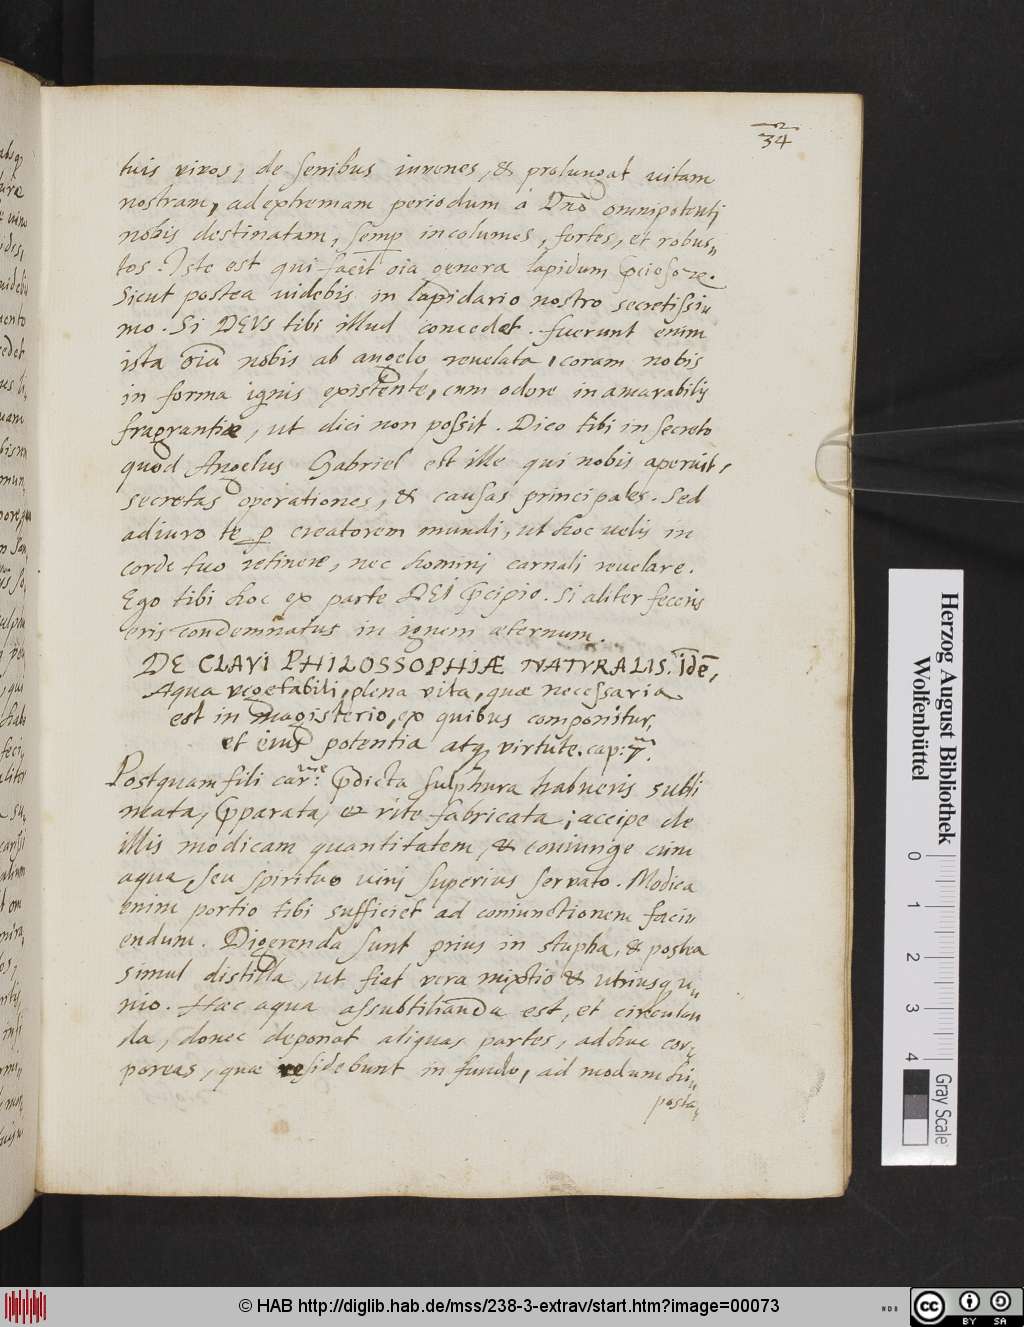 34
tuis vivos, de senibus iuvenes, & prolungat uitam
nostram, ad extremam periodum á Dnō omnipotenti
nobis destinatam, semp incolumes, fortes, et robus„
tos. Iste est qui facit oīa genera lapidum
Sicut postea uidebis in lapidario nostro secretissi„
mo. Si DEVS tibi illud concedet. fuerunt enim
ista oīa nobis ab angelo reuelata, coram nobis
in forma ignis existente, cum odore inamarabilis
fragrantiæ, ut dici non possit. Dico tibi in secreto
quod Angelus Gabriel est ille qui nobis aperuit,
secretas operationes, & causas principales. Sed
adiuro te p creatorem mundi, ut hoc uelis in
corde tuo retinere, nec homini carnali reuelare.
Ego tibi hoc ex parte DEI pcipio. Si aliter feceris
eris condemnatus in ignem æternum.
DE CLAVI PHILOSSOPHIÆ NATVRALIS. idē,
Aqua vegetabili, plena vita, quæ necessaria
est in magisterio, ex quibus componitur,
et eius potentia atq, virtute. cap: 7.
Postquam fili car:me pdicta sulphura habueris subli
meata, pparata, et rite fabricata; accipe de
illis modicam quantitatem, & coniunge cum
aqua, seu spirituo uini superius servato. Modica
enim portio tibi sufficiet ad coniunctionem faciu
endum. Digerenda sunt prius in stupha, & postea
simul distilla, ut fiat vera mixtio & utriusq, u„
nio. Hæc aqua assubtilianda est, et circulan
da, donec deponat aliquas partes, adhuc cor„
poreas, quæ residebunt in fundo, ad modum
posta„
Herzog August Bibliothek
Wolfenbüttel
0 1 2 3 4
Gray Scale
© HAB http://diglib.hab.de/mss/238-3-extrav/start.htm?image=00073
cc BY SA